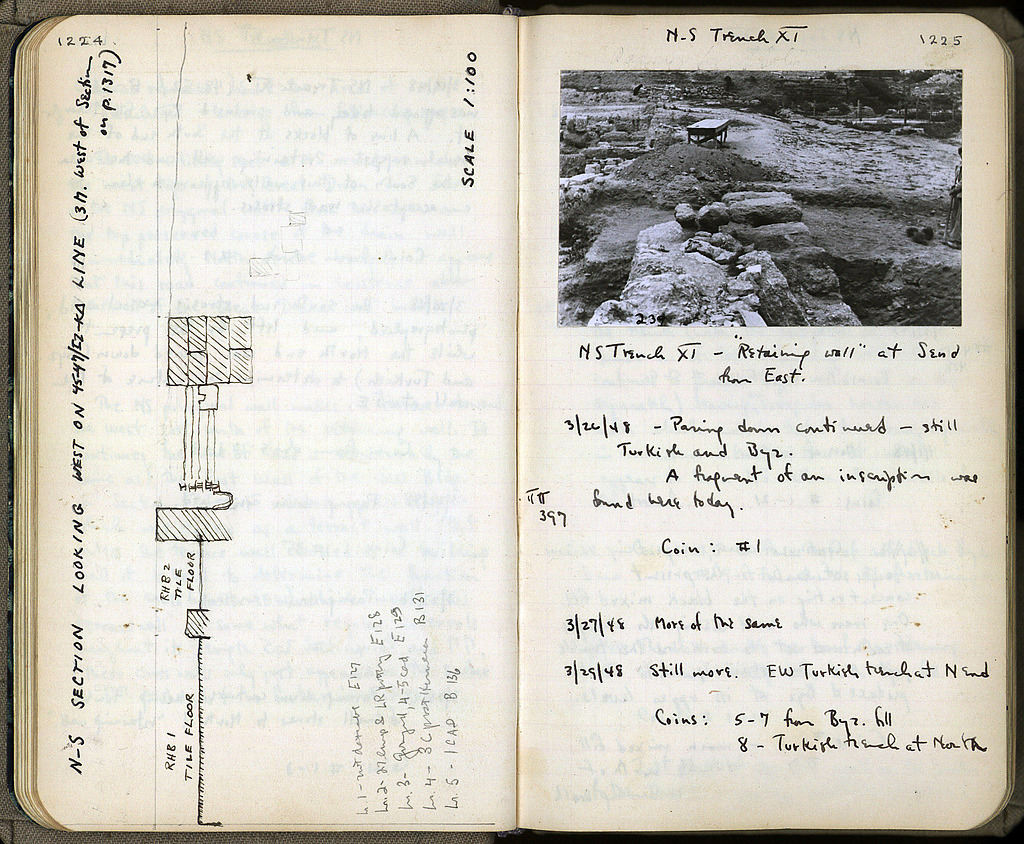 1224.
N-S SECTION LOOKING WEST ON 45-47/EZ-KA LINE (3 M. West of Section
on p. 1317)
SCALE 1:100
RHB 2
TILE
FLOOR
RHB 1
TILE FLOOR
Ln. 1 - E127
Ln. 2 - lamp & LR E128
Ln. 3 - 4-5 cent E129
Ln. 4 - 3 C B 131
Ln. 5 - 1 C AD B 136
N-S Trench XI
1225
239
NS Trench XI - "Retaining wall" at S end
from East.
3/26/48 - Paring down continued - still
Turkish and Byz.
A fragment of an inscription was
found here today.
397
Coin: #1
3/27/48 More of the same
3/29/48 Still more. EW Turkish trench at N end
Coins: 5-7 from Byz. fill
8 - Turkish trench at North